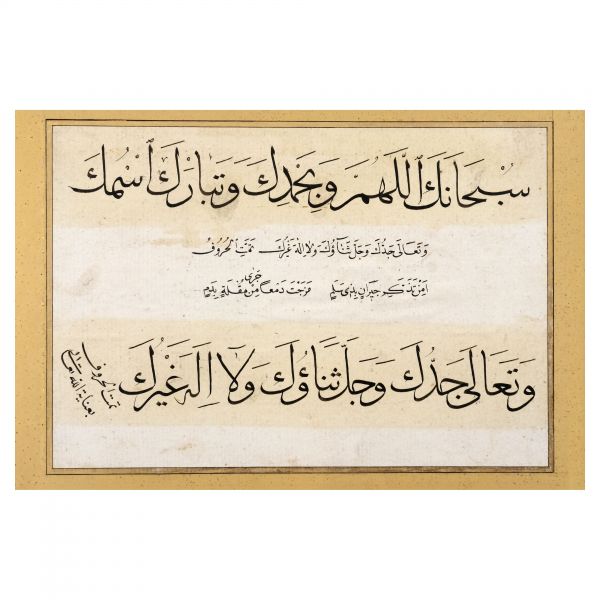 سُبْحَانَكَ ٱللَّهُمَّ وَبِحَمْدِكَ وَتَبَارَكَ ٱسْمُكَ
وَتَعَالَى جَدُّكَ وَجَلَّ ثَنَاؤُكَ وَلَا إِلَهَ غَيْرُكَ تَمَّتَ الْحُرُوفُ
أَمِنْ تَذَكُّرِ جِيرَانٍ بِذِي سَلَمٍ مَزَجْتَ دَمْعًا جَرَى مِنْ مُقْلَةٍ بِدَمٍ
وَتَعَالَى جَدُّكَ وَجَلَّ ثَنَاؤُكَ وَلَا إِلَهَ غَيْرُكَ
تمت الحروف
بعناية الله